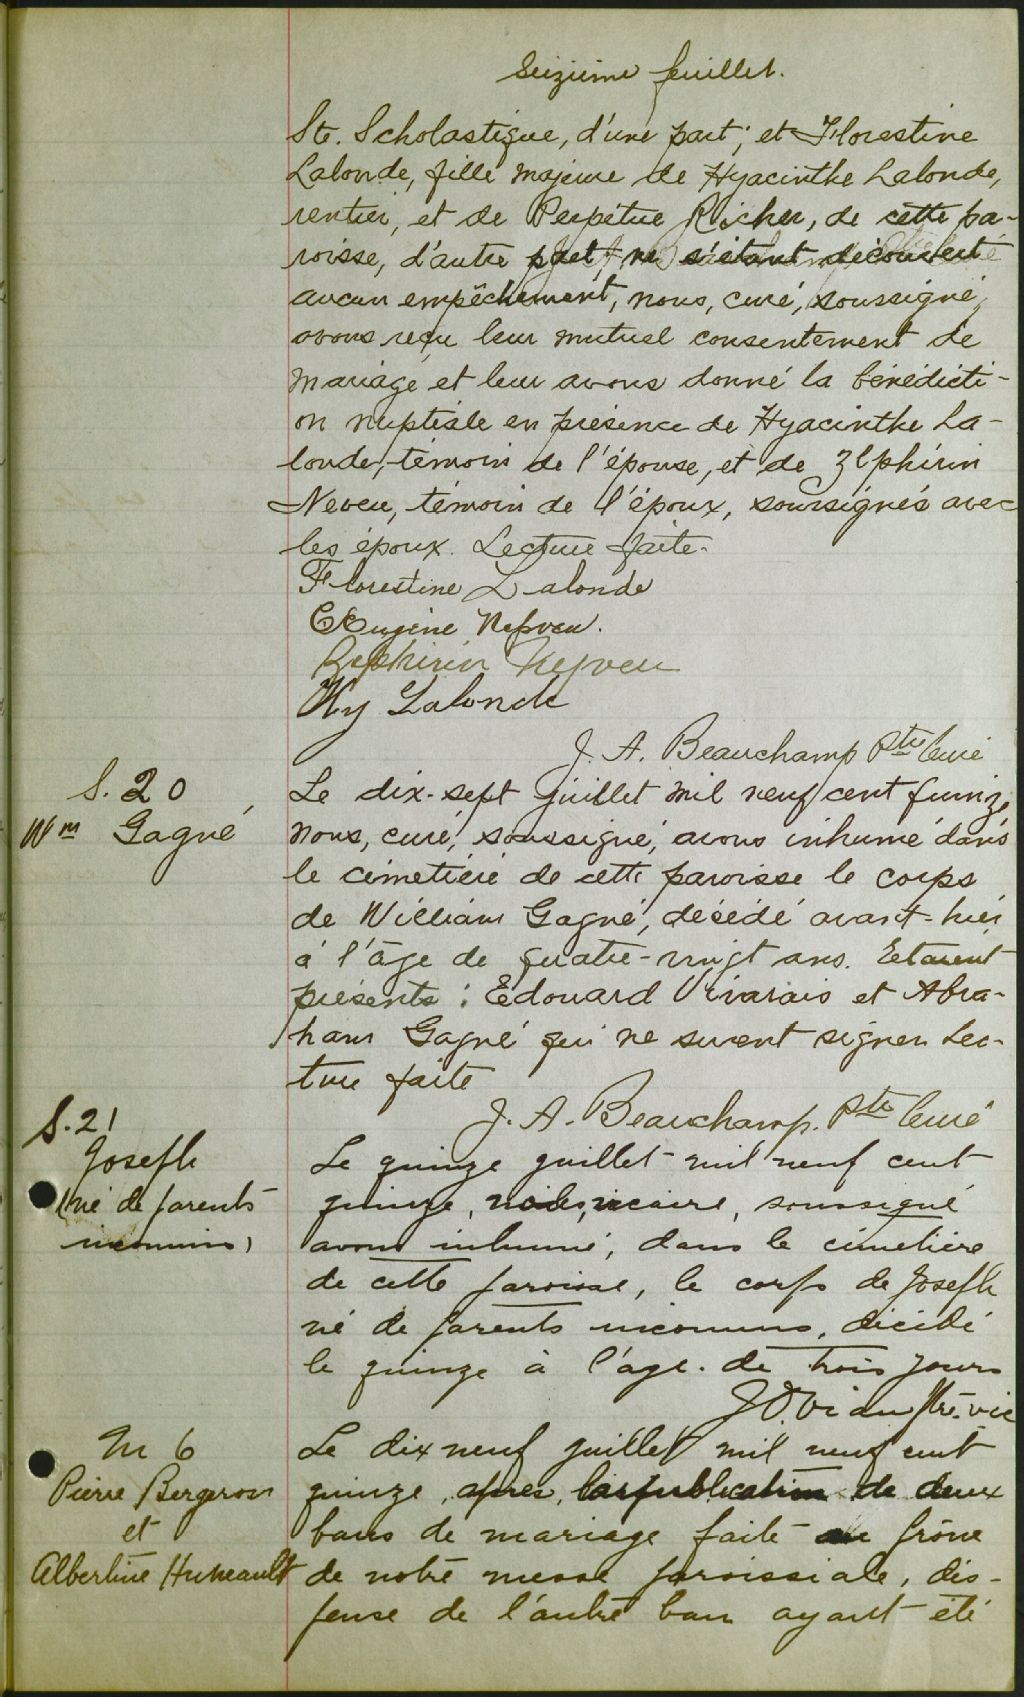 Seizième feuillet.
Ste. Scholastique, d'une part; et Florestine
Lalonde, fille majeure de Hyacinthe Lalonde,
rentier, et de Perpétue Richer, de cette pa-
roisse, d'autre part, ne s'étant découvert
aucun empêchement, nous, curé, soussigné,
avons reçu leur mutuel consentement de
mariage et leur avons donné la bénédicti-
on nuptiale en présence de Hyacinthe La-
londe, témoin de l'épouse, et de Zéphirin
Neveu, témoin de l'époux, soussignés avec
les époux. Lecture faite.
Florestine Lalonde
Eugène Nepveu.
Zephirin Nepveu
Hy Lalonde
J. A. Beauchamp Ptre Curé
S. 20
Wm Gagné
Le dix-sept juillet mil neuf cent quinze
nous, curé, soussigné, avons inhumé dans
le cimetière de cette paroisse le corps
de William Gagné, décédé avant-hier
à l'âge de quatre-vingt ans. Etaient
présents : Edouard Vivarais et Abra-
ham Gagné qui ne surent signer. Lec-
ture faite
J. A. Beauchamp. Ptre Curé
S. 21
Joseph
(né de parents
inconnus)
Le quinze juillet mil neuf cent
quinze, vicaire, soussigné
avons inhumé, dans le cimetière
de cette paroisse, le corps de Joseph
né de parents inconnus, décédé
le quinze à l'age de trois jours
M 6
Pierre Bergeron
et
Albertine Huneault
Le dix neuf juillet mil neuf cent
quinze, après la publication de deux
bans de mariage faite au prône
de notre messe paroissiale, dis-
pense de l'autre ban ayant été